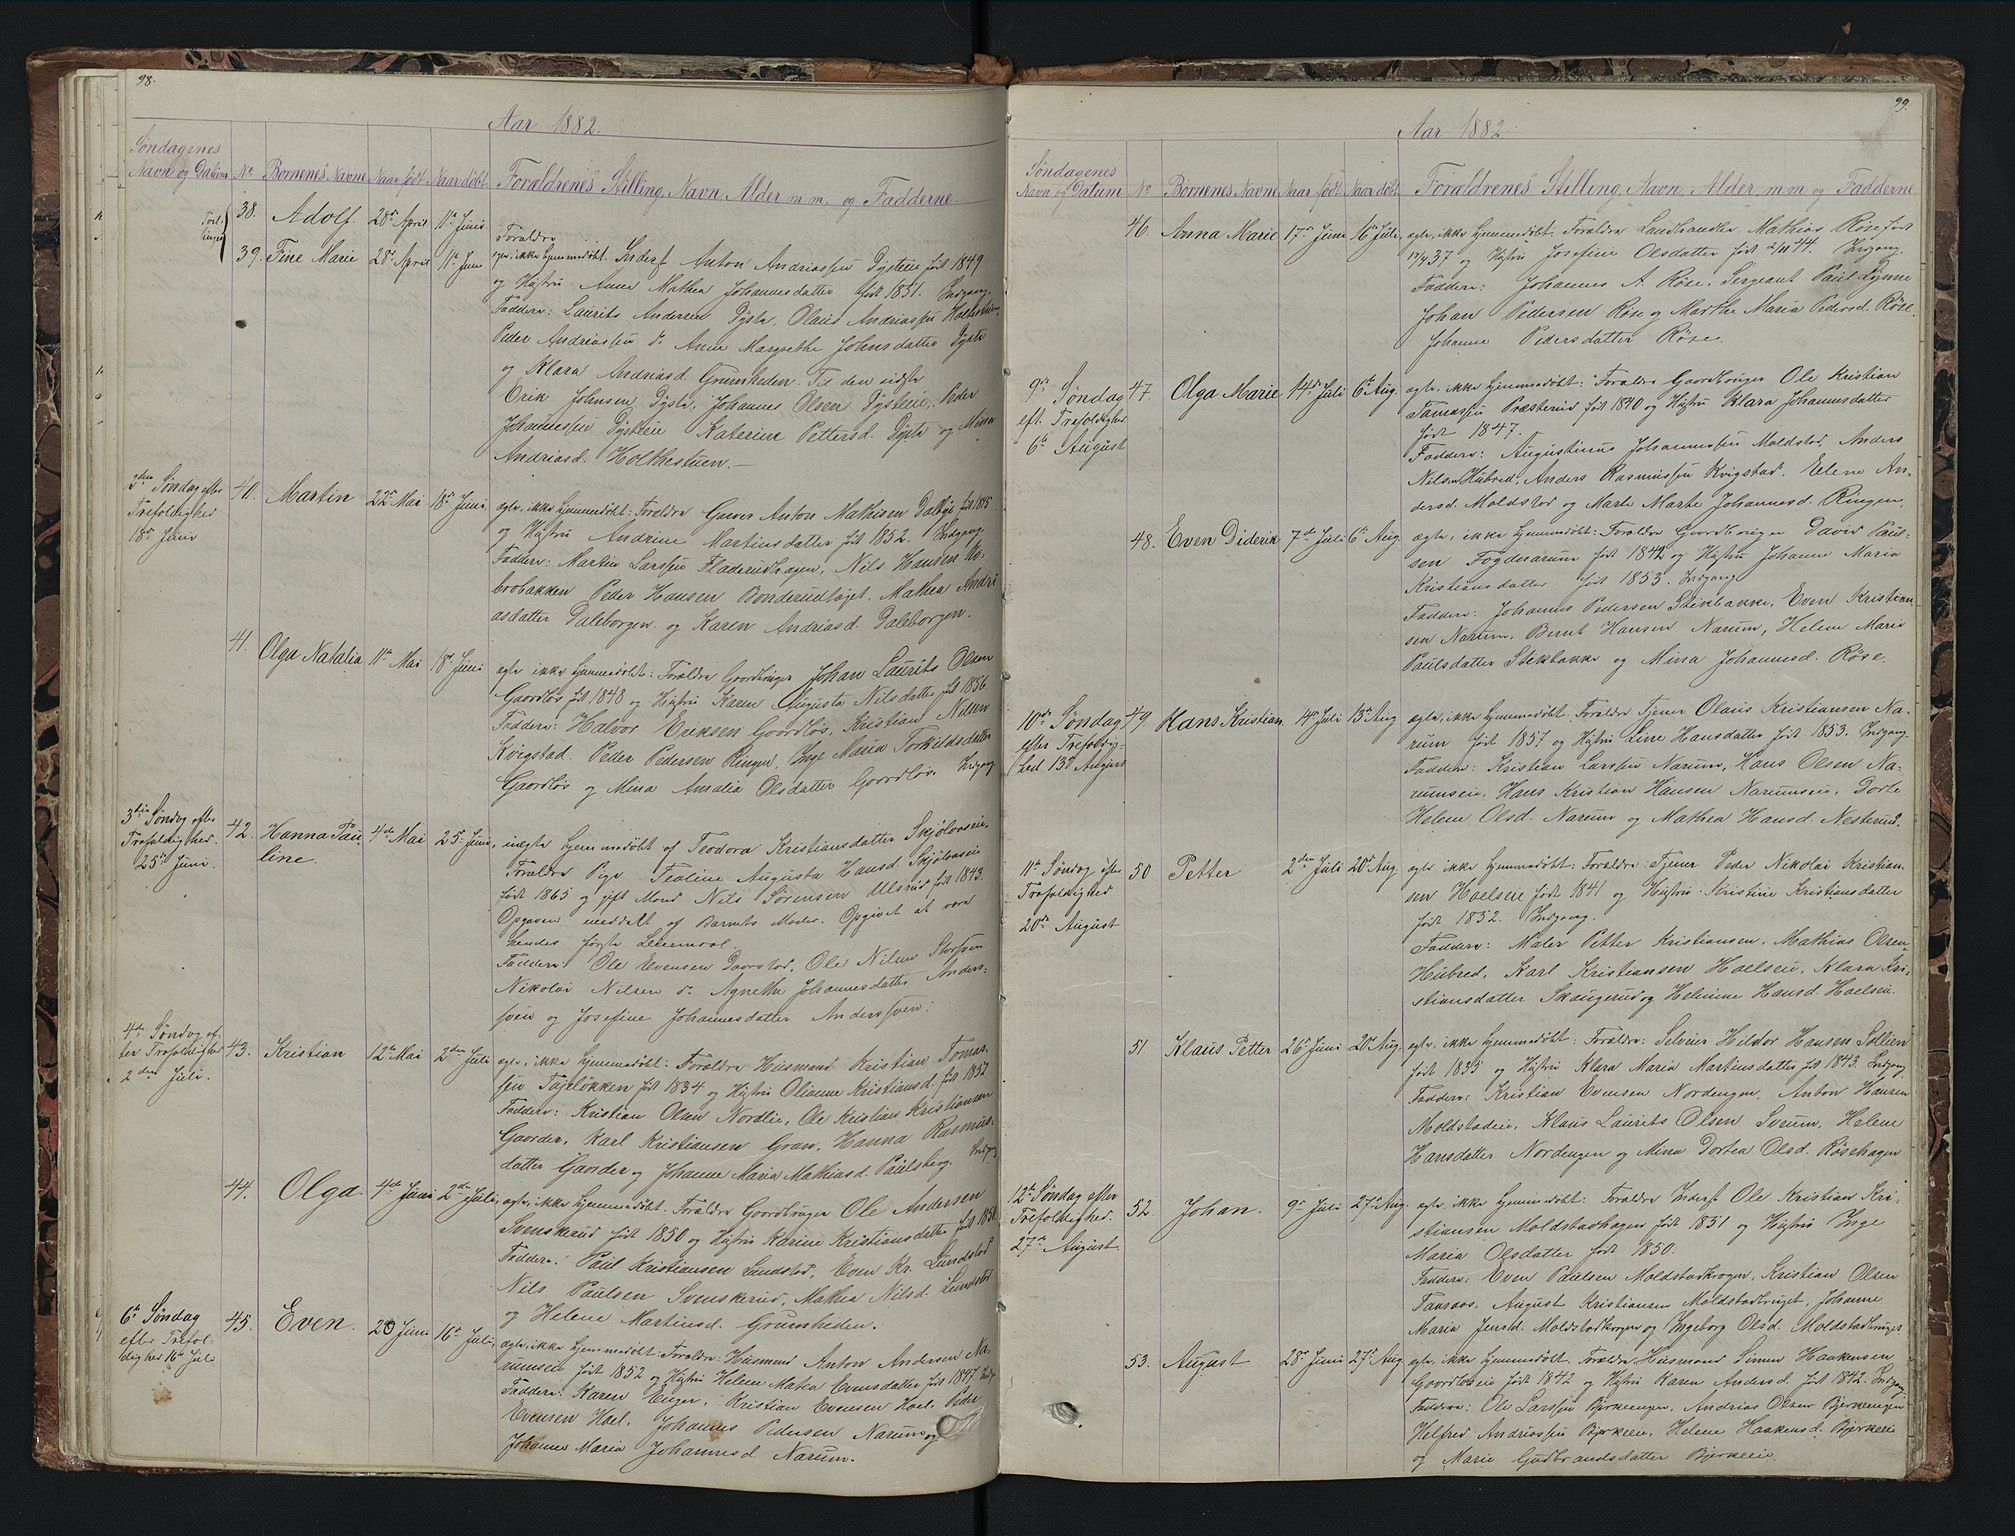 98.
Aar 1882.
Søndagenes
Navn og Datum No Børnenes Navne Naar født Naar døbt Forældrenes Stilling, Navn, Alder m. m. og Fadderne.
38. Adolf 28de April 11te Juni
39. Tine Marie 28de April 11te Juni
Forældre
ægte, ikke hjemmedøbt. Inderst Anton Andriassen Dysteie født 1849
og Hustru Anne Mathea Johannesdatter født 1851. Indgang.
Faddere: Laurits Andersen Dyste, Olaus Andriassen Holthestuen,
Peder Andriassen do Anne Margrethe Johnsdatter Dyste
og Klara Andriasd. Grumheden. Til den sidste
Erik Johnsen Dyste, Johannes Olsen Dysteeie, Peder
Johannessen Dysteie Katerine Pettersd. Dyste og Mina
Andriasd. Holthestuen.
Søndag efter
Trefoldighed
18de Juni
40. Martin 22de Mai 18de Juni.
ægte, ikke hjemmedøbt: Forældre Anton Mathisen Dalbye født 1845
og Hustru Andrine Martinsdatter født 1852. Indgang.
Faddere: Martin Larssen Fladerudhagen, Nils Hansen
Peder Hansen Mathea Andri-
asdatter Daleborgen og Karen Andriasd. Daleborgen.
41. Olga Natalia 11te Mai 18de Juni
ægte ikke hjemmedøbt: Forældre Gaardbruger Johan Laurits Olsen
Gaardløs født 1848 og Hustru Karen Augusta Nilsdatter født 1856
Faddere: Halvor Eriksen Gaardløs, Kristian Nilsen
Kvigstad. Peder Pedersen Ringen, Inge Maria Torkildsdatter
Gaardløs og Mina Amalia Olsdatter Gaardløs. Indgang.
3die Søndag efter
Trefoldighed.
25de Juni
42. Hanna Pau-
line. 4de Mai 25 Juni,
uægte hjemmedøbt af Teodora Kristiansdatter Skjølaaseie.
Forældre Pige Teoline Augusta Hansd. Skjølaaseie
født 1865 og gift Mand Nils Sørensen Ulsrud født 1843.
Opgaven meddelt af Barnets Moder. Opgivet at være
hendes første Leiermaal.
Faddere: Ole Evensen Daarstad, Ole Nilsen
Nikolai Nilsen do Agnethe Johannesdatter Anders-
sveen og Josefine Johannesdatter Anderssveen.
4de Søndag ef-
ter Trefoldighed
2den Juli.
43. Kristian 12te Mai 2den Juli
ægte, ikke hjemmedøbt: Forældre Husmand Kristian Tomas-
sen Tajeløkken født 1834 og Hustru Olianne Kristiansd. født 1852.
Faddere: Kristian Olsen Nordlie, Ole Kristian Kristiansen
Gaarder, Karl Kristiansen Gran, Hanna Rasmus-
datter Gaarder og Johanne Maria Mathiasd. Paulsberg. Indgang
44. Olga 4de Juni 2den Juli,
ægte, ikke hjemmedøbt: Forældre Gaardbruger Ole Andersen
Svenskerud født 1850 og Hustru Karine Kristiansdatter født
Faddere: Paul Kristiansen Lundstad, Even Kr. Lundstad
Nils Paulsen Svenskerud, Mathea Nilsd. Lundstad
og Helene Martinsd. Grumheden.
6te Søndag
efter Trefol-
dighed 16de Juli
45. Even. 20 Juni 16de Juli,
ægte, ikke hjemmedøbt: Forældre: Husmand Anton Andersen Na-
rumseie født 1852 og Hustru Helene Matea Evensdatter født 1847. Indg.
Faddere: Karen Enger, Kristian Evensen Hoel, Peder
Evensen Hoel, Johannes Pedersen Narum og
Johanne Maria Johannesd. Narum.
99.
Aar 1882
Søndagenes
Navn og Datum No Børnenes Navne Naar født Naar døbt Forældrenes Stilling, Navn, Alder m. m. og Fadderne
46. Anna Marie 17de Juni 16de Juli,
ægte, ikke hjemmedøbt. Forældre Landhandler Mathias Røse født
37 og Hustru Josefine Olsdatter født 2/11 44. Indgang.
Faddere: Johannes A. Røse, Sergeant Paul Lynne
Johan Pedersen Røse og Marthe Maria Pedersd. Røse.
Johanne Pedersdatter Røse.
9de Søndag
eft. Trefoldighed
6te August
47. Olga Marie 14de Juli 6te Aug.
ægte, ikke hjemmedøbt: Forældre Gaardbruger Ole Kristian
Tomassen Præsterud født 1840 og Hustru Klara Johannesdatter
født 1847.
Faddere: Augustinus Johannessen Moldstad, Anders
Nilsen Hubred, Anders Rasmussen Kvigstad, Elene An-
dersd. Moldstad og Marte Marte Johannesd. Ringen,
48. Even Diderik 7de Juli 6te Aug.
ægte, ikke hjemmedøbt: Forældre Gaardbruger David Paul-
sen Fogdenarum født 1842 og Hustru Johanne Maria
Kristiansdatter født 1853. Indgang
Faddere: Johannes Pedersen Stikbakke, Even Kristian-
sen Narum, Bernt Hansen Narum, Helene Marie
Paulsdatter Stikbakke og Mina Johannesd. Røse.
10de Søndag
efter Trefoldig-
hed 13de August
49. Hans Kristian. 14de Juli 13de Aug
ægte, ikke hjemmedøbt. Forældre Tjener Olaus Kristiansen Na-
rum født 1857 og Hustru Line Hansdatter født 1853. Indgang.
Faddere: Kristian Larssen Narum, Hans Olsen Na-
rumseie, Hans Kristian Hansen Narumseie, Dorte
Helene Olsd. Narum og Mathea Hansd. Nesterud.
11te Søndag efter
Trefoldighed
20de August
50 Petter 2den Juli 20de Aug.
ægte ikke hjemmedøbt: Forældre: Tjener Peder Nikolai Kristian-
sen Hoelseie født 1841 og Hustru Kristine Kristiansdatter
født 1852. Indgang.
Faddere: Maler Petter Kristiansen, Mathias Olsen
Hubred, Karl Kristiansen Hoelseie, Klara Kri-
stiansdatter Skaugerud og Helmine Hansd. Hoelseie.
51. Klaus Petter 26de Juni 20de Aug.
ægte, ikke hjemmedøbt: Forældre: Selveier Hildor Hansen Sollien
født 1835 og Hustru Klara Maria Martinsdatter født 1843. Indgang
Faddere: Kristian Evensen Nordengen, Anton Hansen
Moldstadeie, Klaus Laurits Olsen Sveum, Helene
Hansdatter Nordengen og Mina Dortea Olsd. Røsehagen
12te Søndag efter
Trefoldighed.
27de August
52. Johan. 9de Juli 27de Aug.
ægte, ikke hjemmedøbt: Forældre Inderst Ole Kristian Kri-
stiansen Moldstadhagen født 1851 og Hustru Inge
Maria Olsdatter født 1850.
Faddere: Even Paulsen Moldstadkrogen, Kristian Olsen
August Kristiansen Moldstadbruget, Johanne
Maria Jensd. Moldstadkrogen og Ingeborg Olsd. Moldstadbruget
53. August 28de Juni 27de Aug
ægte, ikke hjemmedøbt. Forældre Husmand Simen Haakensen
Gaardløseie født 1842 og Hustru Karen Andersd. født 1842. Indgang.
Faddere: Ole Larssen Bjerkeengen, Andrias Olsen Bjerkeengen
Helfred Andriassen Bjerkeeie, Helene Haakensd. Bjerkeeie
og Marie Gudbrandsdatter Bjerkeeie.